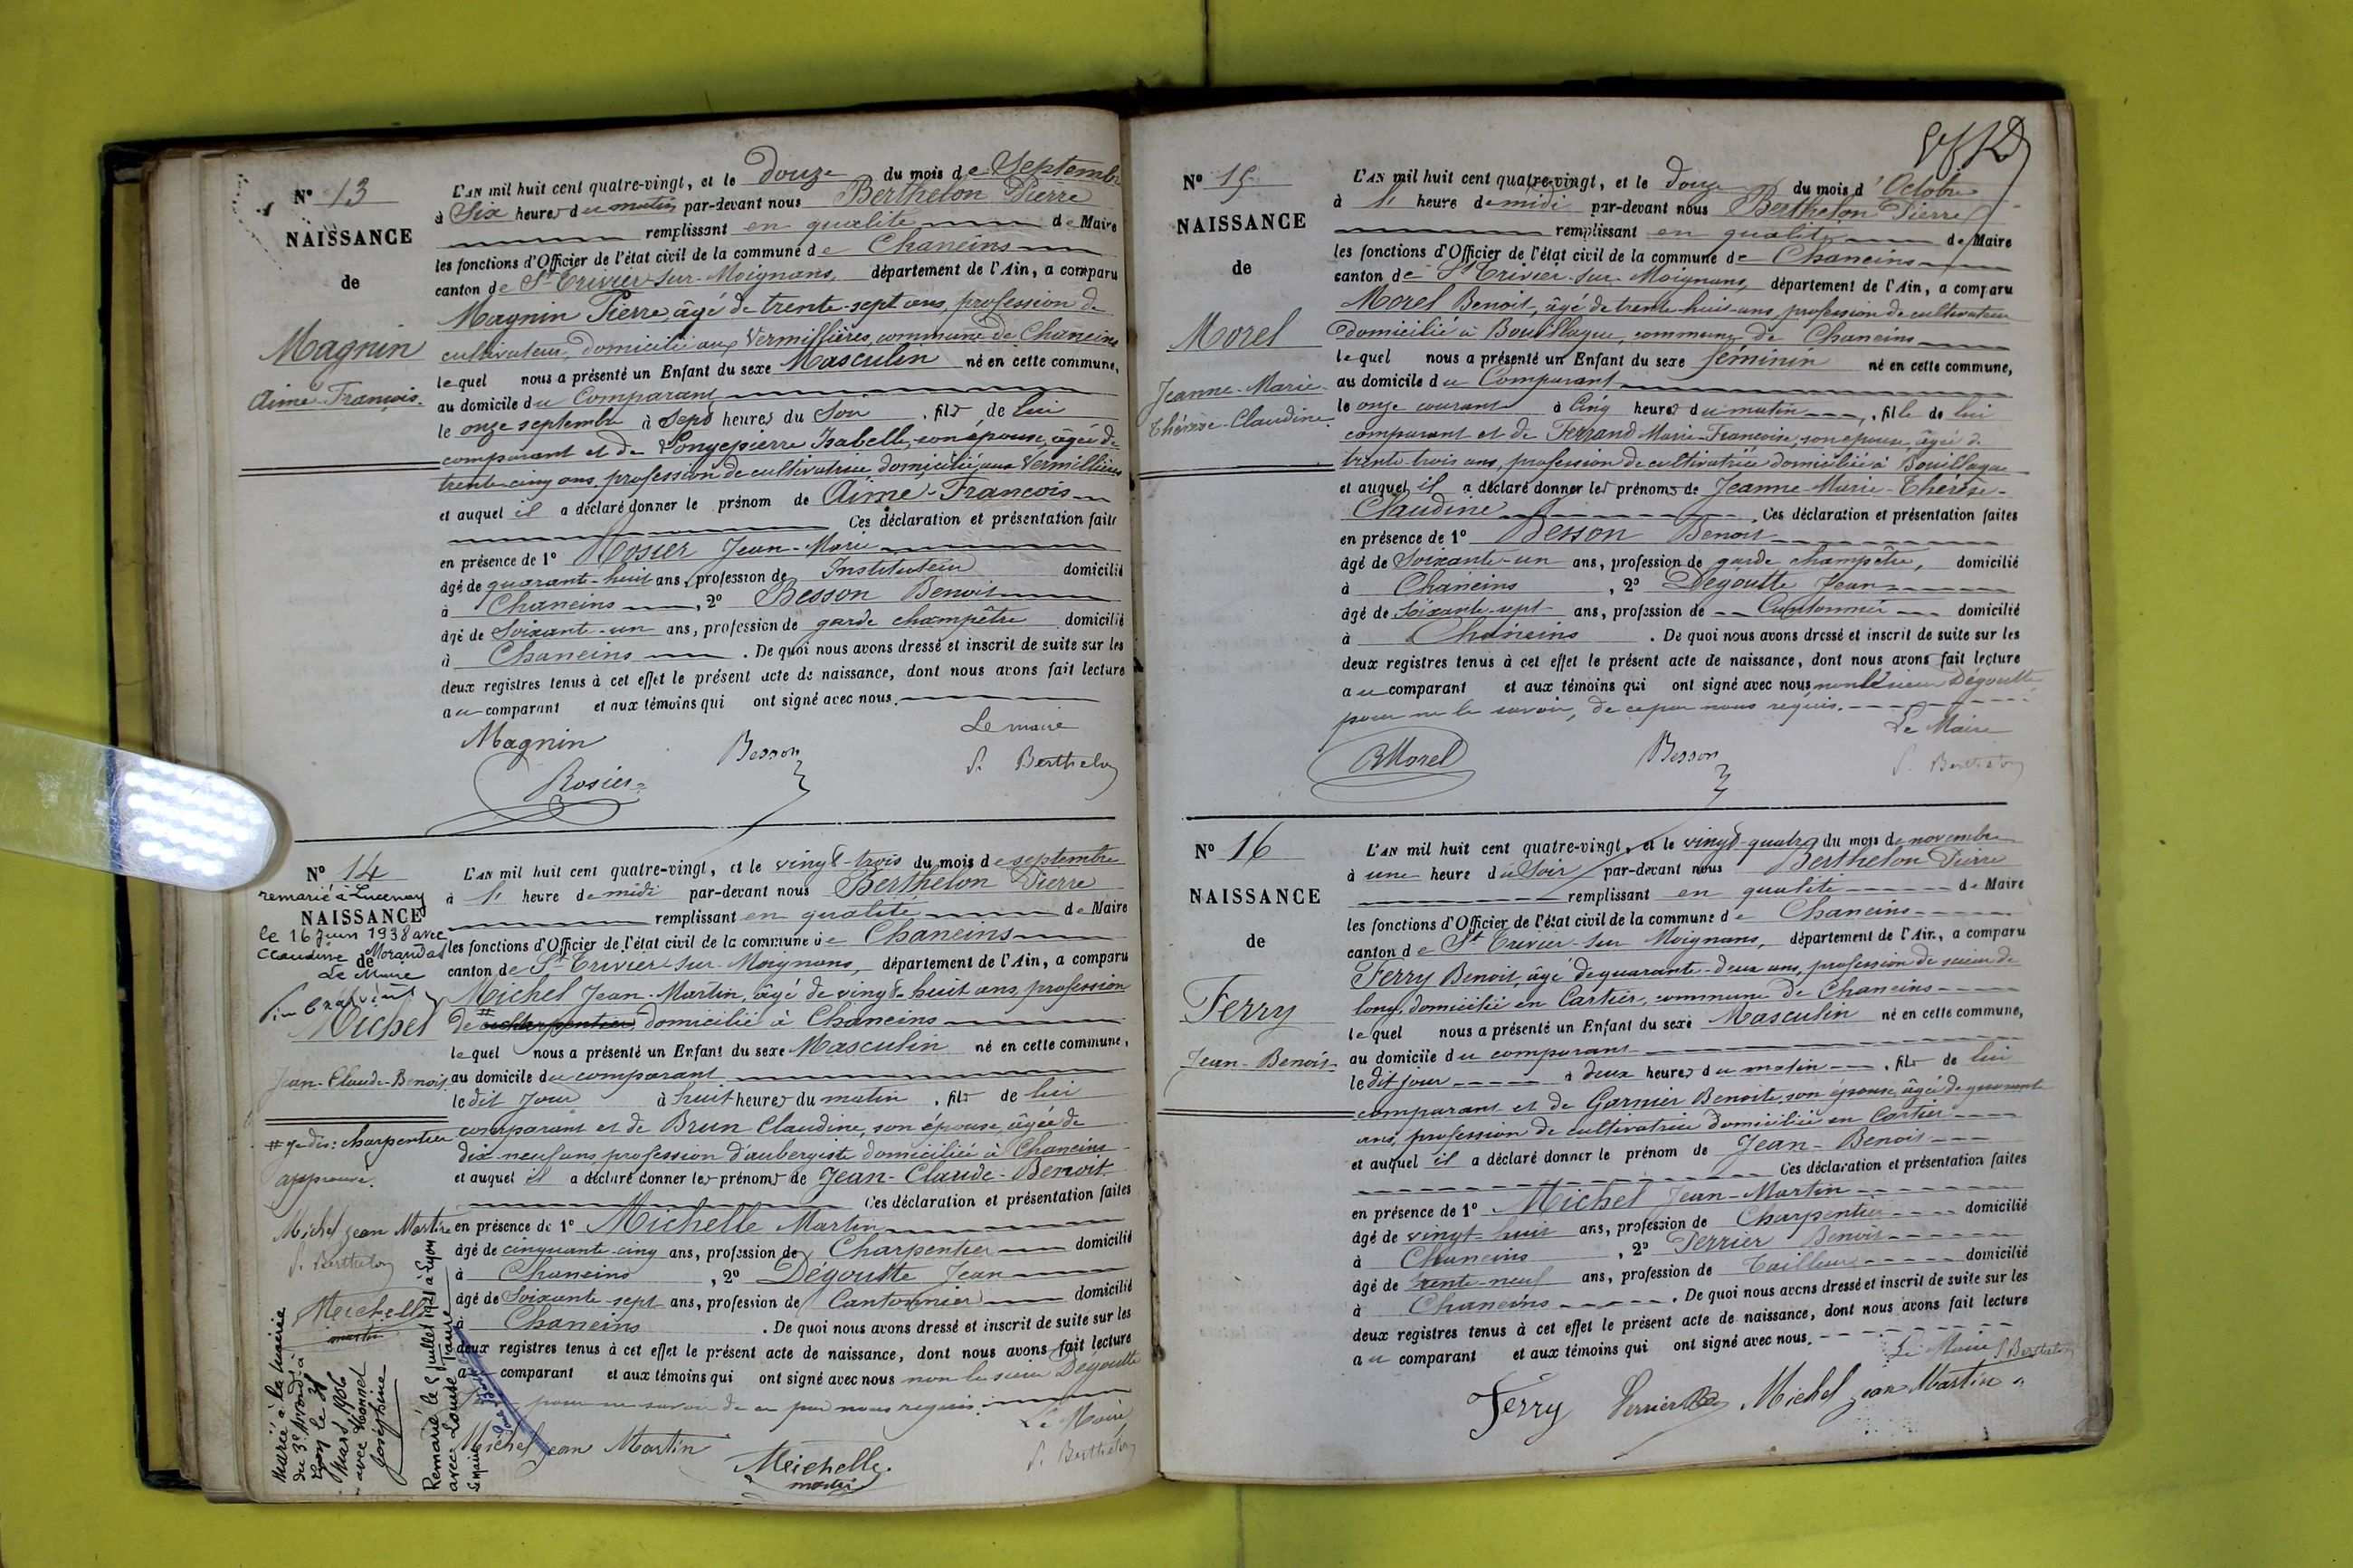 N° 13
NAISSANCE
de
Magnin
Aimé-François.
L'AN mil huit cent quatre-vingt, et le douze du mois de Septembre
à Six heures du matin par-devant nous Berthelon Pierre
remplissant en qualité de Maire
les fonctions d'Officier de l'état civil de la commune de Chaneins
canton de St Trivier-sur-Moignans, département de l'Ain, a comparu
Magnin Pierre, âgé de trente-sept ans, profession de
cultivateur, domicilié aux Vermillières, commune de Chaneins
lequel nous a présenté un Enfant du sexe Masculin né en cette commune,
au domicile du Comparant
le onze septembre à Sept heures du Soir, fils de lui
comparant et de Pongepierre Isabelle, son épouse, âgée de
trente-cinq ans, profession de cultivatrice domiciliée aux Vermillières
et auquel il a déclaré donner le prénom de Aimé-François
Ces déclaration et présentation faites
en présence de 1° Rosier Jean-Marie
âgé de quarante-huit ans, profession de Instituteur domicilié
à Chaneins, 2° Besson Benoit
âgé de Soixante-un ans, profession de garde champêtre domicilié
à Chaneins. De quoi nous avons dressé et inscrit de suite sur les
deux registres tenus à cet effet le présent acte de naissance, dont nous avons fait lecture
au comparant et aux témoins qui ont signé avec nous.
Le maire
Magnin Besson P. Berthelon
Rosier
N° 14
remarié à Lucenay
NAISSANCE
le 16 juin 1938 avec
Claudine Morandas
de
Le Maire
Michel
Jean-Claude-Benoit
# je dis: charpentier
approuvé.
Michel jean Martin
P. Berthelon
Meichelle
martin
Marié à la mairie
du 3e Arrond. à
Lyon le 31
Mars 1906
avec Monnet
Joséphine
Remarié le 5 juillet 1921 à Lyon
avec Louise Faure
Le maire
L'AN mil huit cent quatre-vingt, et le vingt-trois du mois de septembre
à 1 heure de midi par-devant nous Berthelon Pierre
remplissant en qualité de Maire
les fonctions d'Officier de l'état civil de la commune de Chaneins
canton de St Trivier-sur-Moignans, département de l'Ain, a comparu
Michel Jean-Martin, âgé de vingt-huit ans, profession
de # domicilié à Chaneins
lequel nous a présenté un Enfant du sexe Masculin né en cette commune,
au domicile du comparant
le dit jour à huit heures du matin, fils de lui
comparant et de Brun Claudine, son épouse, âgée de
dix-neuf ans profession d'aubergiste domiciliée à Chaneins
et auquel il a déclaré donner les prénoms de Jean-Claude-Benoit
Ces déclaration et présentation faites
en présence de 1° Michelle Martin
âgé de cinquante-cinq ans, profession de Charpentier domicilié
à Chaneins, 2° Dégoutte Jean
âgé de Soixante-sept ans, profession de Cantonnier domicilié
à Chaneins. De quoi nous avons dressé et inscrit de suite sur les
deux registres tenus à cet effet le présent acte de naissance, dont nous avons fait lecture
au comparant et aux témoins qui ont signé avec nous non le sieur Dégoutte
pour ne savoir de ce par nous requis.
Le Maire
Michel jean Martin Meichelle P. Berthelon
martin
N° 15
NAISSANCE
de
Morel
Jeanne-Marie-
Thérèse-Claudine.
L'AN mil huit cent quatre-vingt, et le douze du mois d'Octobre
à 1 heure de midi par-devant nous Berthelon Pierre
remplissant en qualité de Maire
les fonctions d'Officier de l'état civil de la commune de Chaneins
canton de St Trivier-sur-Moignans, département de l'Ain, a comparu
Morel Benoit, âgé de trente-huit ans, profession de cultivateur
domicilié à Bouillague, commune de Chaneins
lequel nous a présenté un Enfant du sexe féminin né en cette commune,
au domicile du Comparant
le onze courant à Cinq heures du matin, fille de lui
comparant et de Ferrand Marie-Françoise, son épouse, âgée de
trente-trois ans, profession de cultivatrice domiciliée à Bouillague
et auquel il a déclaré donner les prénoms de Jeanne-Marie-Thérèse-
Claudine. Ces déclaration et présentation faites
en présence de 1° Besson Benoit
âgé de Soixante-un ans, profession de garde champêtre, domicilié
à Chaneins, 2° Dégoutte Jean
âgé de Soixante-sept ans, profession de Cantonnier domicilié
à Chaneins. De quoi nous avons dressé et inscrit de suite sur les
deux registres tenus à cet effet le présent acte de naissance, dont nous avons fait lecture
au comparant et aux témoins qui ont signé avec nous non le sieur Dégoutte
pour ne le savoir, de ce par nous requis.
Le Maire
BMorel Besson P. Berthelon
N° 16
NAISSANCE
de
Ferry
Jean-Benoit
L'AN mil huit cent quatre-vingt, et le vingt-quatre du mois de novembre
à une heure du Soir par-devant nous Berthelon Pierre
remplissant en qualité de Maire
les fonctions d'Officier de l'état civil de la commune de Chaneins
canton de St Trivier-sur-Moignans, département de l'Ain, a comparu
Ferry Benoit, âgé de quarante-deux ans, profession de scieur de
long, domicilié en Cartier, commune de Chaneins
lequel nous a présenté un Enfant du sexe Masculin né en cette commune,
au domicile du comparant
le dit jour à deux heures du matin, fils de lui
comparant et de Garnier Benoite, son épouse, âgée de quarante
ans, profession de cultivatrice domiciliée en Cartier
et auquel il a déclaré donner le prénom de Jean-Benoit
Ces déclaration et présentation faites
en présence de 1° Michel Jean-Martin
âgé de vingt-huit ans, profession de Charpentier domicilié
à Chaneins, 2° Perrier Benoit
âgé de trente-neuf ans, profession de Tailleur domicilié
à Chaneins. De quoi nous avons dressé et inscrit de suite sur les
deux registres tenus à cet effet le présent acte de naissance, dont nous avons fait lecture
au comparant et aux témoins qui ont signé avec nous.
Le Maire P. Berthelon
Ferry Perrier Michel jean Martin